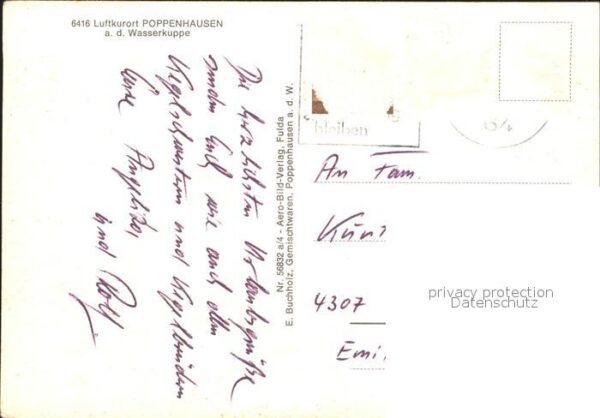 6416 Luftkurort POPPENHAUSEN
a. d. Wasserkuppe
Die herzlichsten Urlaubsgrüße
senden Euch wie auch allen
Kegelschwestern und Kegelbrüdern
Eure Angelika
und Rolf
Nr. 56832 a/4 - Aero-Bild-Verlag, Fulda
E. Buchholz, Gemischtwaren, Poppenhausen a. d. W.
bleiben
An Fam.
Kun
4307
Emi
privacy protection
Datenschutz